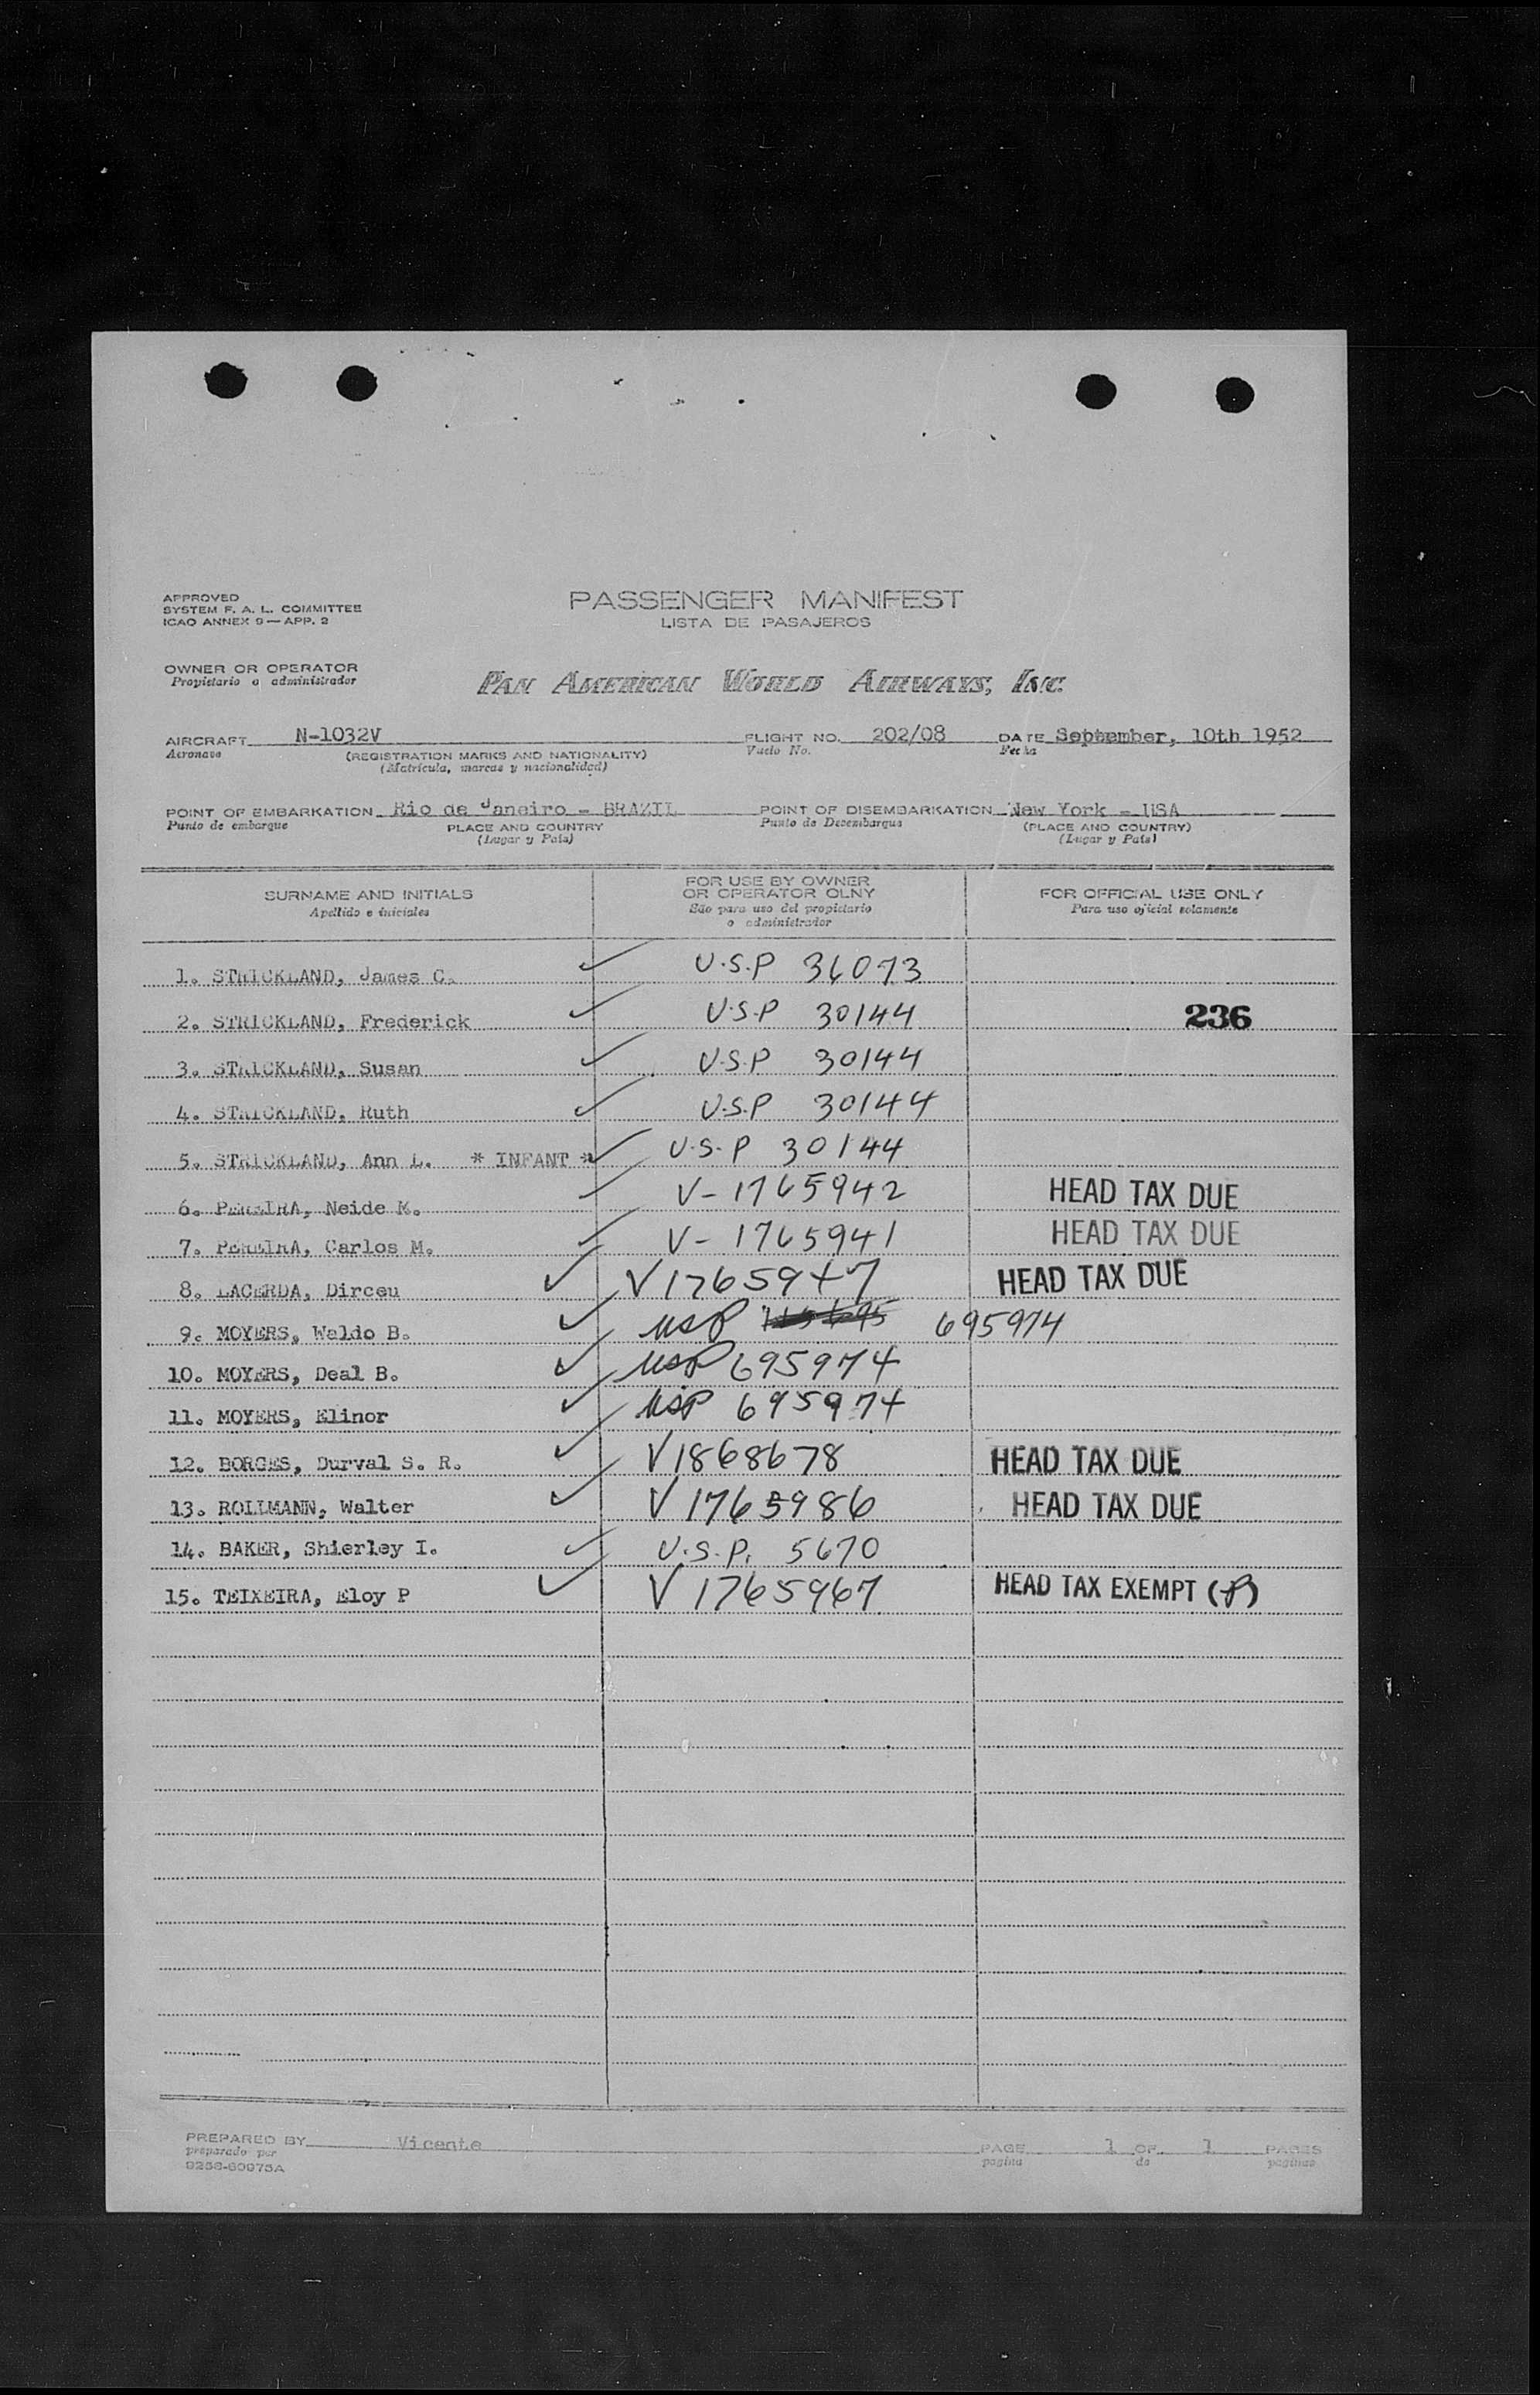 APPROVED
SYSTEM F. A. L. COMMITTEE
ICAO ANNEX 9 — APP. 2
PASSENGER MANIFEST
LISTA DE PASAJEROS
OWNER OR OPERATOR
Propietario o administrador
PAN AMERICAN WORLD AIRWAYS, INC.
AIRCRAFT N-1032V FLIGHT NO. 202/08 DATE September, 10th 1952
Aeronave (REGISTRATION MARKS AND NATIONALITY) Vuelo No. Fecha
(Matrícula, marcas y nacionalidad)
POINT OF EMBARKATION Rio de Janeiro - BRAZIL POINT OF DISEMBARKATION New York - USA
Punto de embarque PLACE AND COUNTRY Punto de Desembarque (PLACE AND COUNTRY)
(Lugar y País) (Lugar y País)
SURNAME AND INITIALS
Apellido e iniciales
FOR USE BY OWNER
OR OPERATOR OLNY
São para uso del propietario
o administrador
FOR OFFICIAL USE ONLY
Para uso oficial solamente
1. STRICKLAND, James C. ✓ U.S.P 36073
2. STRICKLAND, Frederick ✓ U.S.P 30144 236
3. STRICKLAND, Susan ✓ U.S.P 30144
4. STRICKLAND, Ruth ✓ U.S.P 30144
5. STRICKLAND, Ann L. * INFANT * ✓ U.S.P 30144
6. PEREIRA, Neide M. ✓ V-1765942 HEAD TAX DUE
7. PEREIRA, Carlos M. ✓ V-1765941 HEAD TAX DUE
8. LACERDA, Dirceu ✓ V1765947 HEAD TAX DUE
9. MOYERS, Waldo B. ✓ USP 695974
10. MOYERS, Deal B. ✓ USP 695974
11. MOYERS, Elinor ✓ USP 695974
12. BORGES, Durval S. R. ✓ V1868678 HEAD TAX DUE
13. ROLLMANN, Walter ✓ V1765986 HEAD TAX DUE
14. BAKER, Shierley I. ✓ U.S.P. 5670
15. TEIXEIRA, Eloy P ✓ V 1765967 HEAD TAX EXEMPT (P)
PREPARED BY Vicente PAGE 1 OF 1 PAGES
preparado por pagina de paginas
9256-60975A